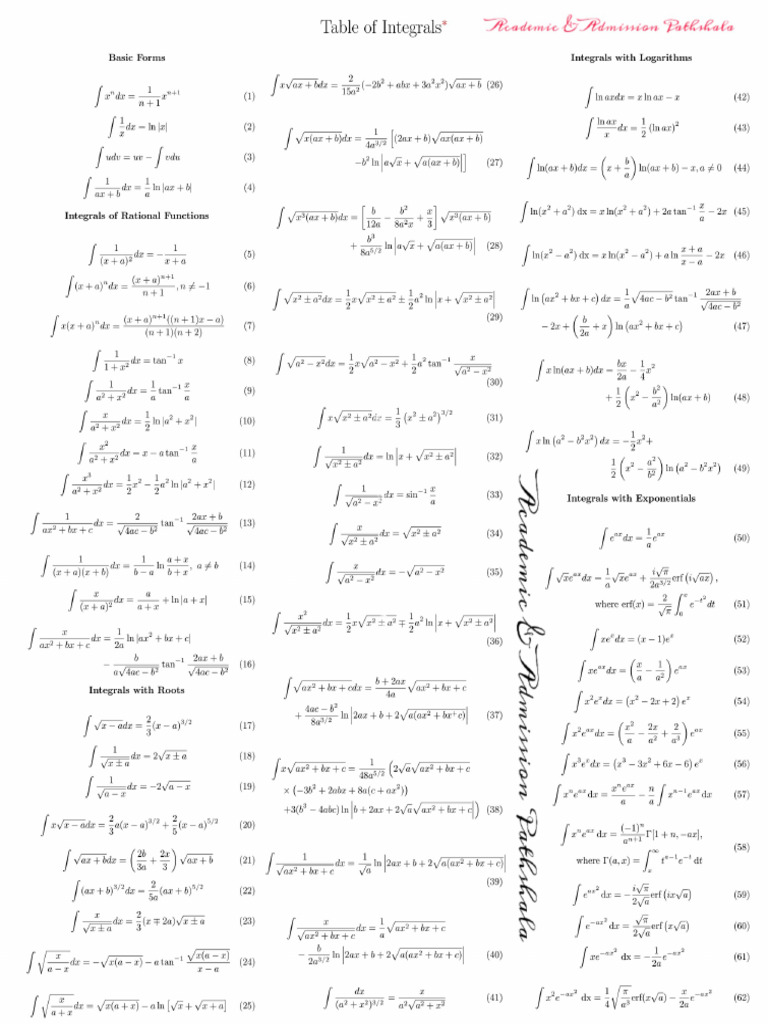 Table of Integrals*
Academic & Admission Pathshala
Basic Forms
∫ xⁿdx = 1/(n+1) xⁿ⁺¹ (1)
∫ 1/x dx = ln|x| (2)
∫ udv = uv − ∫ vdu (3)
∫ 1/(ax+b) dx = 1/a ln|ax + b| (4)
Integrals of Rational Functions
∫ 1/(x+a)² dx = − 1/(x+a) (5)
∫ (x+a)ⁿdx = (x+a)ⁿ⁺¹/(n+1), n ≠ −1 (6)
∫ x(x+a)ⁿdx = (x+a)ⁿ⁺¹((n+1)x−a)/((n+1)(n+2)) (7)
∫ 1/(1+x²) dx = tan⁻¹ x (8)
∫ 1/(a²+x²) dx = 1/a tan⁻¹ x/a (9)
∫ x/(a²+x²) dx = 1/2 ln|a²+x²| (10)
∫ x²/(a²+x²) dx = x − a tan⁻¹ x/a (11)
∫ x³/(a²+x²) dx = 1/2 x² − 1/2 a² ln|a²+x²| (12)
∫ 1/(ax²+bx+c) dx = 2/√(4ac−b²) tan⁻¹ (2ax+b)/√(4ac−b²) (13)
∫ 1/((x+a)(x+b)) dx = 1/(b−a) ln (a+x)/(b+x), a ≠ b (14)
∫ x/(x+a)² dx = a/(a+x) + ln|a+x| (15)
∫ x/(ax²+bx+c) dx = 1/(2a) ln|ax²+bx+c|
− b/(a√(4ac−b²)) tan⁻¹ (2ax+b)/√(4ac−b²) (16)
Integrals with Roots
∫ √(x−a)dx = 2/3 (x−a)^(3/2) (17)
∫ 1/√(x±a) dx = 2√(x±a) (18)
∫ 1/√(a−x) dx = −2√(a−x) (19)
∫ x√(x−a)dx = 2/3 a(x−a)^(3/2) + 2/5 (x−a)^(5/2) (20)
∫ √(ax+b)dx = (2b/3a + 2x/3) √(ax+b) (21)
∫ (ax+b)^(3/2)dx = 2/(5a) (ax+b)^(5/2) (22)
∫ x/√(x±a) dx = 2/3 (x∓2a)√(x±a) (23)
∫ √(x/(a−x)) dx = −√(x(a−x)) − a tan⁻¹ √(x(a−x))/(x−a) (24)
∫ √(x/(a+x)) dx = √(x(a+x)) − a ln [√x + √(x+a)] (25)
∫ x√(ax+b)dx = 2/(15a²) (−2b²+abx+3a²x²)√(ax+b) (26)
∫ √(x(ax+b))dx = 1/(4a^(3/2)) [(2ax+b)√(ax(ax+b))
−b² ln |a√x + √(a(ax+b))|] (27)
∫ √(x³(ax+b))dx = [b/(12a) − b²/(8a²x) + x/3] √(x³(ax+b))
+ b³/(8a^(5/2)) ln |a√x + √(a(ax+b))| (28)
∫ √(x²±a²)dx = 1/2 x√(x²±a²) ± 1/2 a² ln |x + √(x²±a²)|
(29)
∫ √(a²−x²)dx = 1/2 x√(a²−x²) + 1/2 a² tan⁻¹ x/√(a²−x²)
(30)
∫ x√(x²±a²)dx = 1/3 (x²±a²)^(3/2) (31)
∫ 1/√(x²±a²) dx = ln |x + √(x²±a²)| (32)
∫ 1/√(a²−x²) dx = sin⁻¹ x/a (33)
∫ x/√(x²±a²) dx = √(x²±a²) (34)
∫ x/√(a²−x²) dx = −√(a²−x²) (35)
∫ x²/√(x²±a²) dx = 1/2 x√(x²±a²) ∓ 1/2 a² ln |x + √(x²±a²)|
(36)
∫ √(ax²+bx+c)dx = (b+2ax)/(4a) √(ax²+bx+c)
+ (4ac−b²)/(8a^(3/2)) ln |2ax+b+2√(a(ax²+bx+c))| (37)
∫ x√(ax²+bx+c) = 1/(48a^(5/2)) (2√a√(ax²+bx+c)
× (−3b²+2abx+8a(c+ax²))
+3(b³−4abc) ln |b+2ax+2√a√(ax²+bx+c)|) (38)
∫ 1/√(ax²+bx+c) dx = 1/√a ln |2ax+b+2√(a(ax²+bx+c))|
(39)
∫ x/√(ax²+bx+c) dx = 1/a √(ax²+bx+c)
− b/(2a^(3/2)) ln |2ax+b+2√(a(ax²+bx+c))| (40)
∫ dx/(a²+x²)^(3/2) = x/(a²√(a²+x²)) (41)
Academic & Admission Pathshala
Integrals with Logarithms
∫ ln axdx = x ln ax − x (42)
∫ ln ax/x dx = 1/2 (ln ax)² (43)
∫ ln(ax+b)dx = (x + b/a) ln(ax+b) − x, a ≠ 0 (44)
∫ ln(x²+a²) dx = x ln(x²+a²) + 2a tan⁻¹ x/a − 2x (45)
∫ ln(x²−a²) dx = x ln(x²−a²) + a ln (x+a)/(x−a) − 2x (46)
∫ ln (ax²+bx+c) dx = 1/a √(4ac−b²) tan⁻¹ (2ax+b)/√(4ac−b²)
− 2x + (b/2a + x) ln (ax²+bx+c) (47)
∫ x ln(ax+b)dx = bx/2a − 1/4 x²
+ 1/2 (x² − b²/a²) ln(ax+b) (48)
∫ x ln (a²−b²x²) dx = −1/2 x²+
1/2 (x² − a²/b²) ln (a²−b²x²) (49)
Integrals with Exponentials
∫ eᵃˣdx = 1/a eᵃˣ (50)
∫ √x eᵃˣdx = 1/a √x eᵃˣ + i√π/(2a^(3/2)) erf (i√(ax)),
where erf(x) = 2/√π ∫₀ˣ e^(−t²)dt (51)
∫ xeˣdx = (x−1)eˣ (52)
∫ xeᵃˣdx = (x/a − 1/a²) eᵃˣ (53)
∫ x²eˣdx = (x²−2x+2) eˣ (54)
∫ x²eᵃˣdx = (x²/a − 2x/a² + 2/a³) eᵃˣ (55)
∫ x³eˣdx = (x³−3x²+6x−6) eˣ (56)
∫ xⁿeᵃˣ dx = xⁿeᵃˣ/a − n/a ∫ xⁿ⁻¹eᵃˣdx (57)
∫ xⁿeᵃˣ dx = (−1)ⁿ/aⁿ⁺¹ Γ[1+n, −ax],
(58)
where Γ(a, x) = ∫ₓ^∞ tᵃ⁻¹e⁻ᵗ dt
∫ e^(ax²) dx = − i√π/(2√a) erf (ix√a) (59)
∫ e^(−ax²) dx = √π/(2√a) erf (x√a) (60)
∫ xe^(−ax²) dx = − 1/(2a) e^(−ax²) (61)
∫ x²e^(−ax²) dx = 1/4 √(π/a³) erf(x√a) − x/(2a) e^(−ax²) (62)